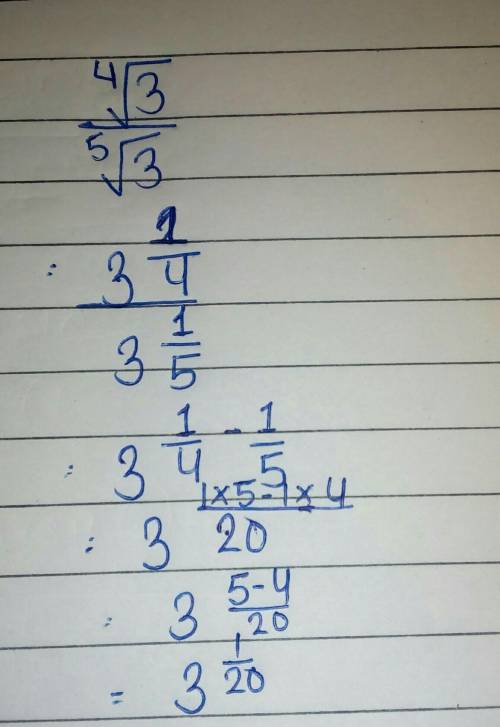 ⁴√3
⁵√3
: 3 1/4
3 1/5
: 3 1/4 - 1/5
: 3 1×5-1×4/20
: 3 5-4/20
= 3 1/20